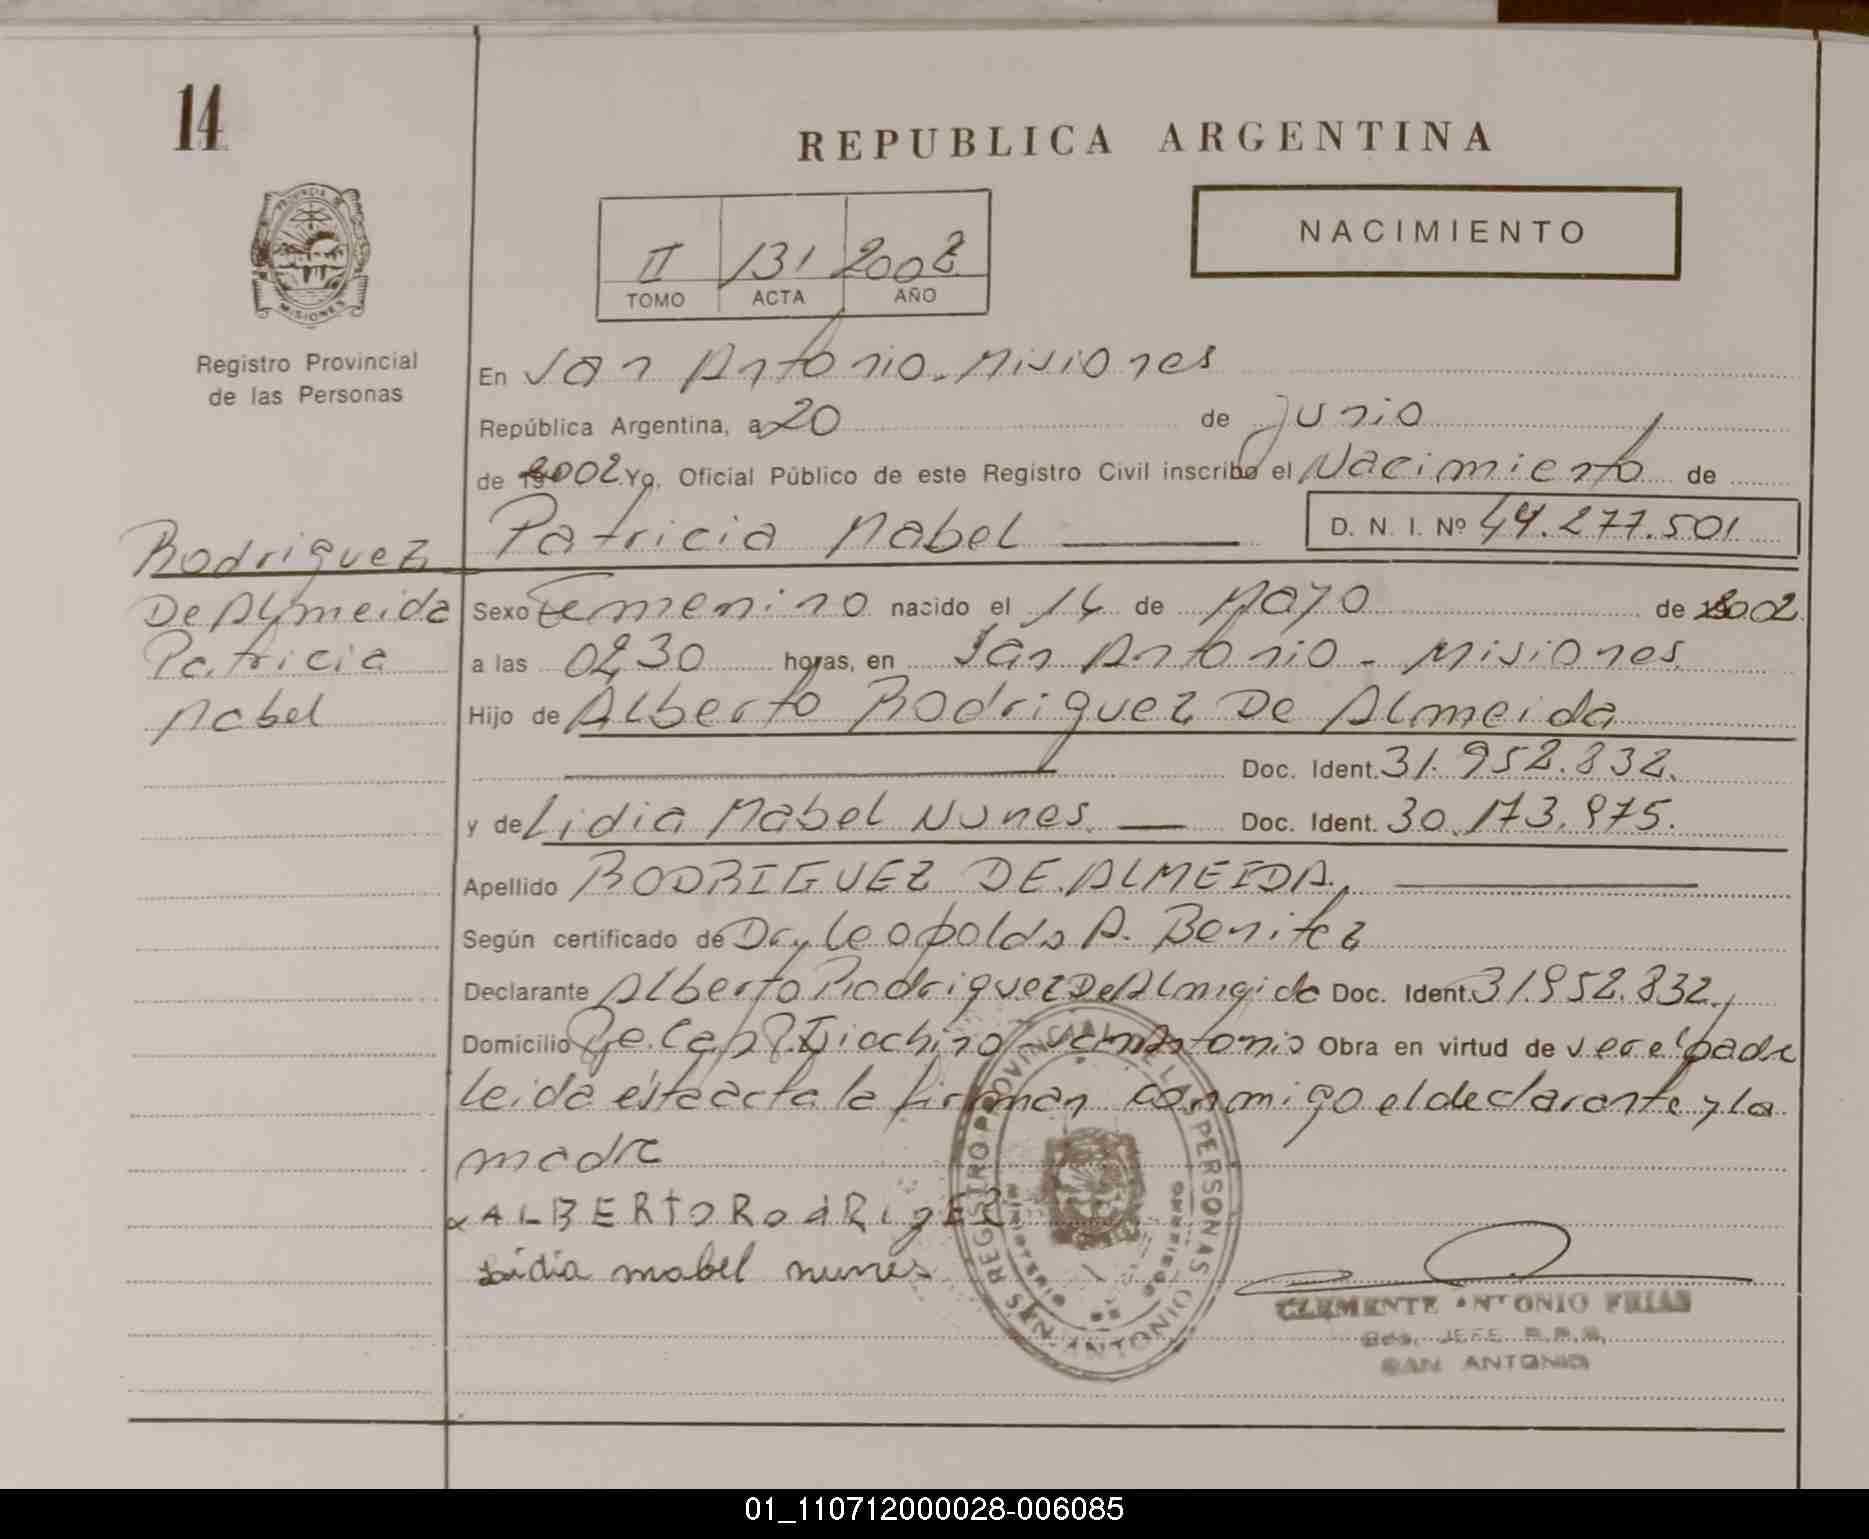 14
REPUBLICA ARGENTINA
NACIMIENTO
II 131 2002
TOMO ACTA AÑO
PROVINCIA DE
MISIONES
Registro Provincial
de las Personas
En San Antonio - Misiones
República Argentina, a 20 de Junio
de 2002 Yo, Oficial Público de este Registro Civil inscribo el Nacimiento de
Patricia Mabel D. N. I. Nº 44.277.501
Rodriguez
De Almeida
Patricia
Mabel
Sexo Femenino nacido el 14 de Mayo de 2002
a las 02,30 horas, en San Antonio - Misiones
Hijo de Alberto Rodriguez De Almeida
Doc. Ident. 31.952.832.
y de Lidia Mabel Nunes Doc. Ident. 30.173.975.
Apellido RODRIGUEZ DE ALMEIDA
Según certificado de Dr. Leopoldo A. Benitez
Declarante Alberto Rodriguez De Almeida Doc. Ident. 31.952.832.
Domicilio San Antonio Obra en virtud de ser el padre
leida esta acta la firman conmigo el declarante y la
madre
ALBERTO RodRigEZ
Lidia mabel nunes
REGISTRO PROVINCIAL DE LAS PERSONAS
SAN ANTONIO
MINISTERIO DE GOBIERNO
CLEMENTE ANTONIO FRIAS
JEFE R.P.P.
SAN ANTONIO
01_110712000028-006085